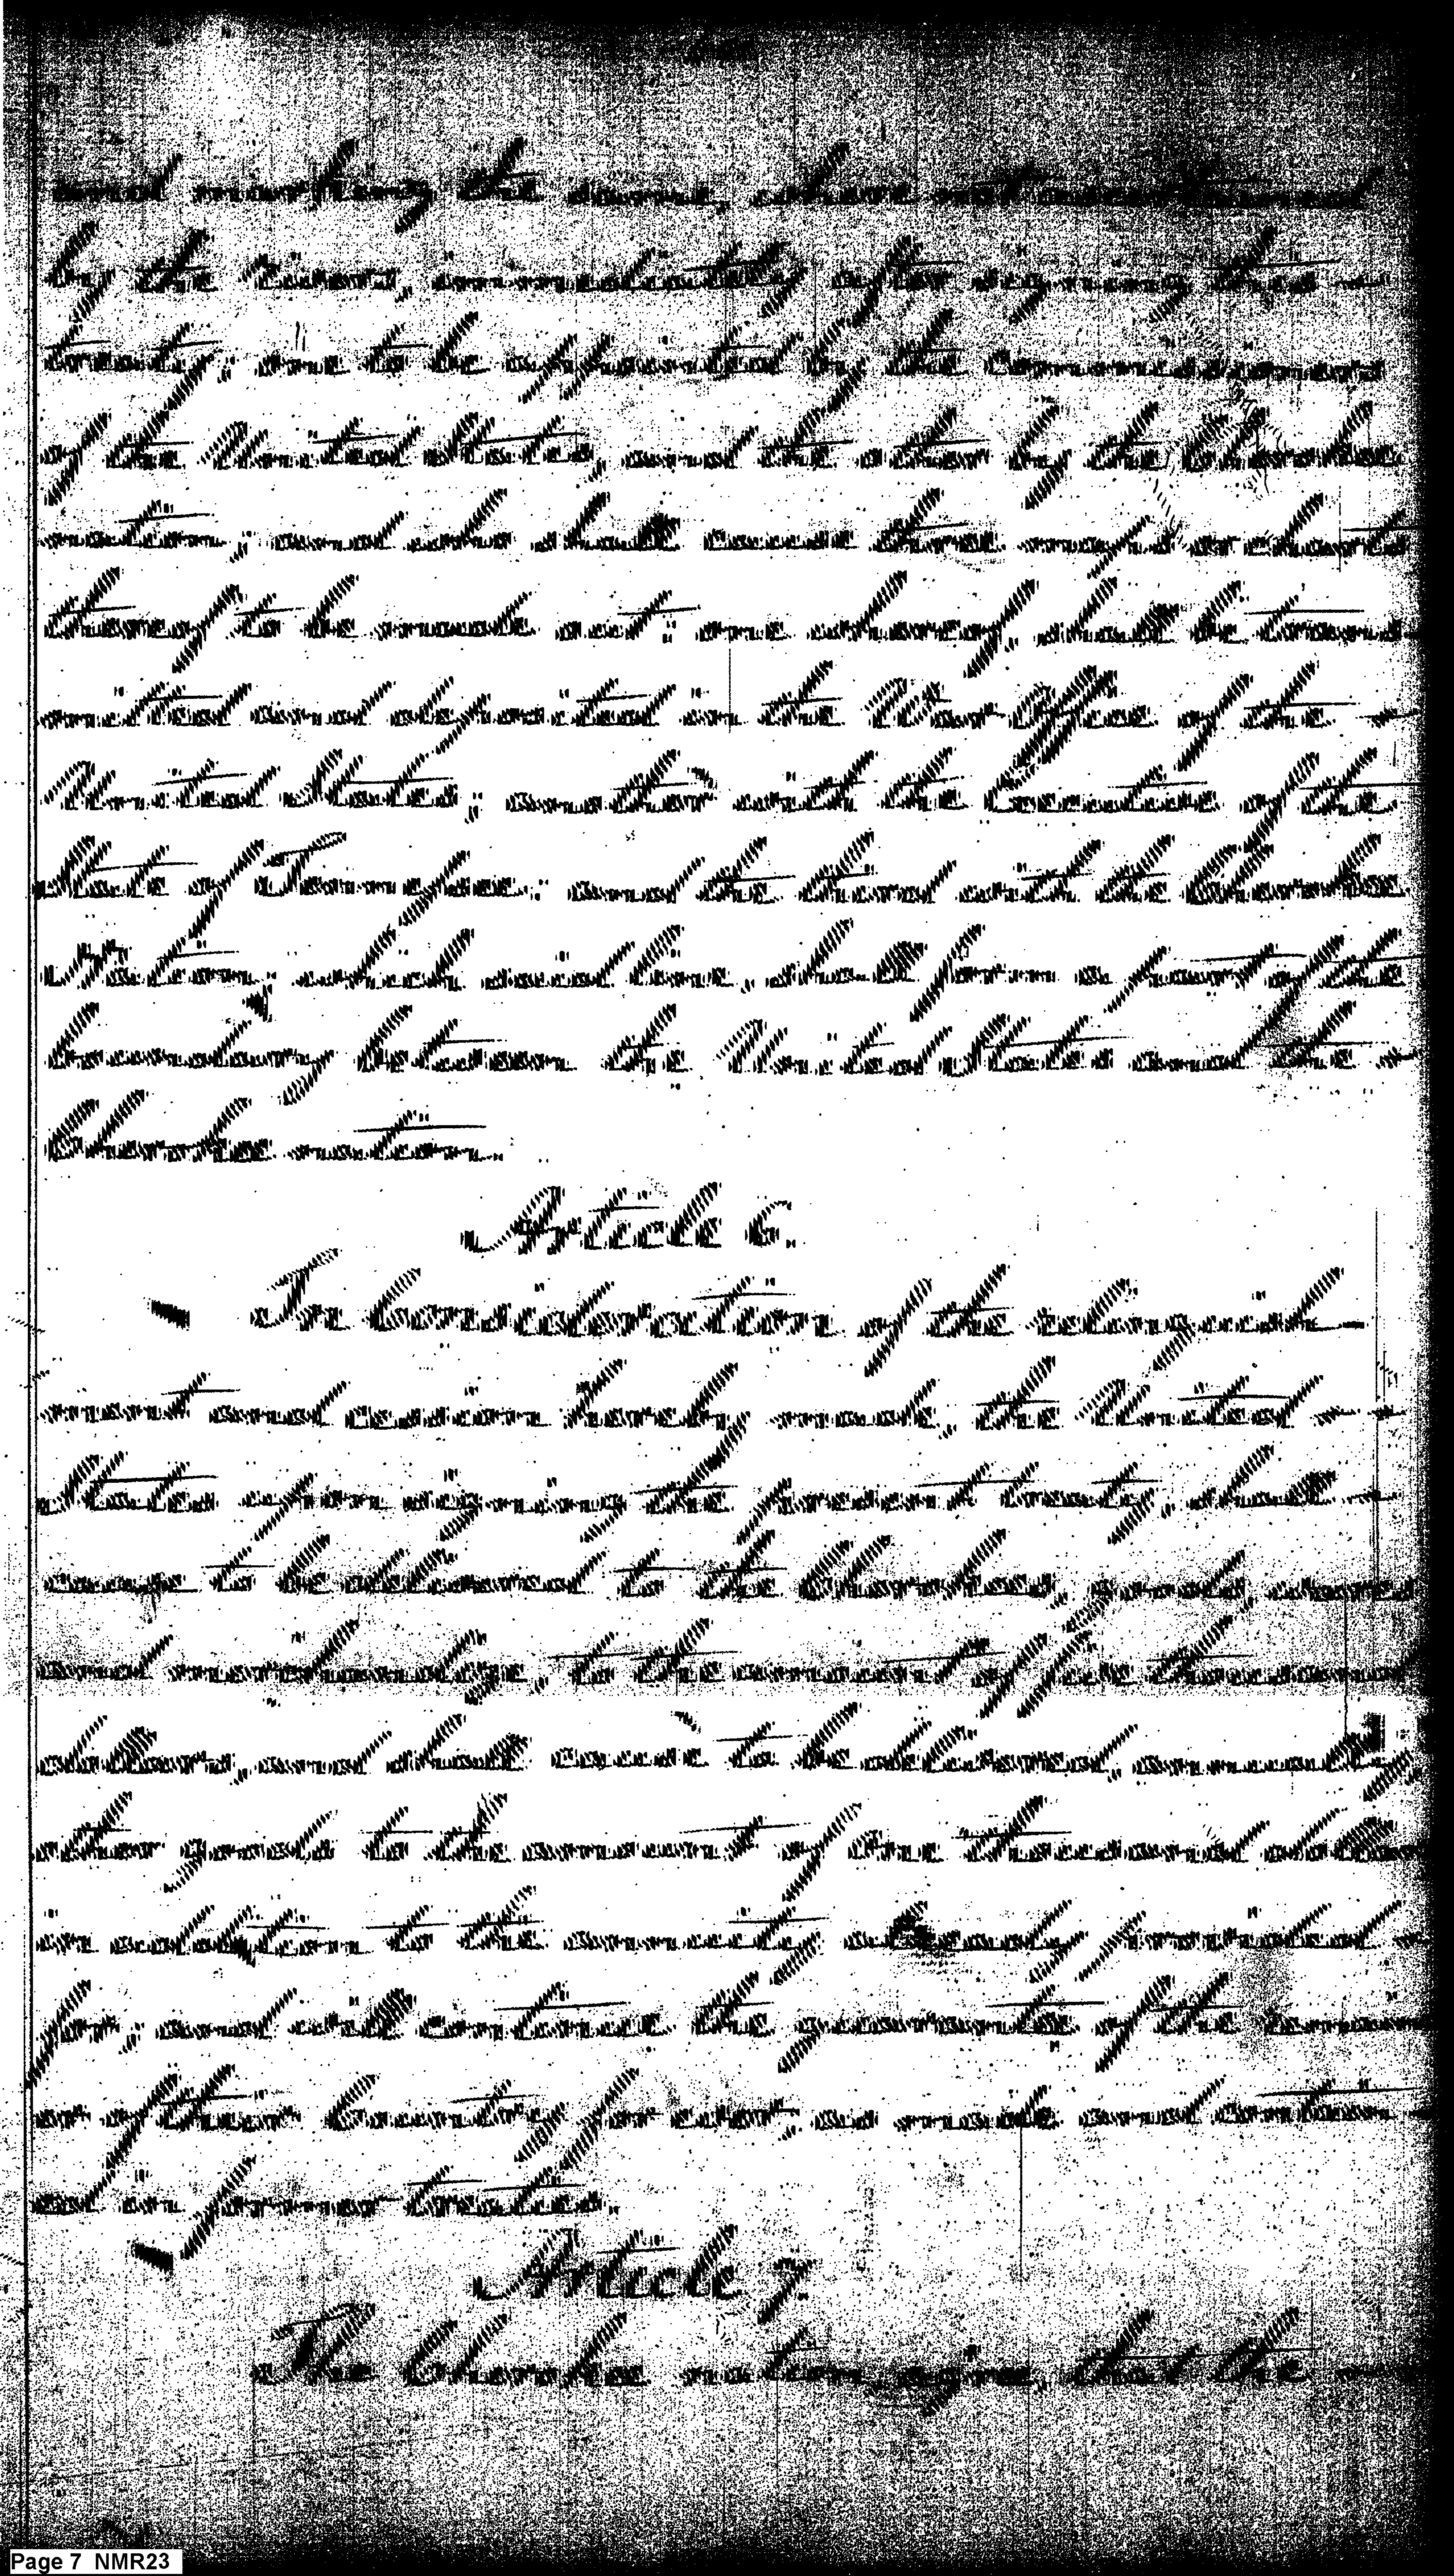 and marking the same, where not ascertained
by the rivers, immediately after signing this
treaty; one to be appointed by the Commissioners
of the United States, and the other by the Cherokee
nation; and who shall cause three maps or charts
thereof to be made out; one whereof, shall be trans
mitted and deposited in the War Office of the
United States; another with the Executive of the
State of Tennessee; and the third with the Cherokee
Nation, which said line, shall form a part of the
boundary between the United States and the
Cherokee nation.
Article 6.
In Consideration of the relinquish
ment and cession hereby made, the United
States upon signing the present treaty, shall
cause to be delivered to the Cherokees, goods,
and merchandise, to the amount of five thousand
dollars, and shall cause to be delivered, annually
other goods to the amount of one thousand dollars
in addition to the annuity already provided
for; and will continue the guarantee of the remain
of their country for ever, as made and contain
ed in former treaties.
Article 7.
The Cherokee nation agree, that the
Page 7 NMR23